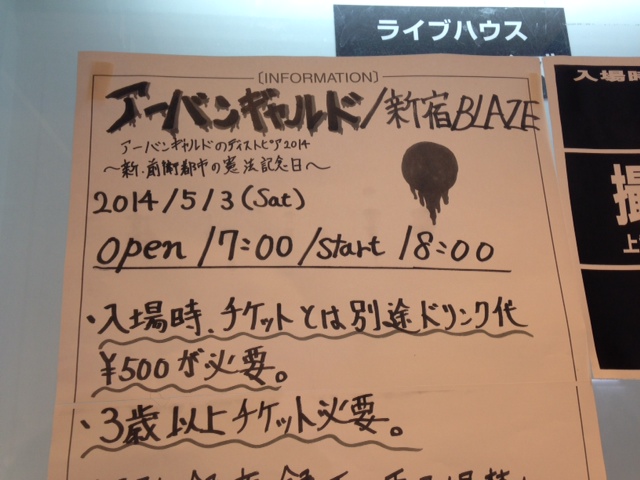 ライブハウス
〔INFORMATION〕
アーバンギャルド/新宿BLAZE
アーバンギャルドのディストピア2014
〜新・前衛都市の憲法記念日〜
2014/5/3(Sat)
open/17:00/start/18:00
・入場時、チケットとは別途ドリンク代
¥500が必要。
・3歳以上チケット必要。
入場時
撮
上